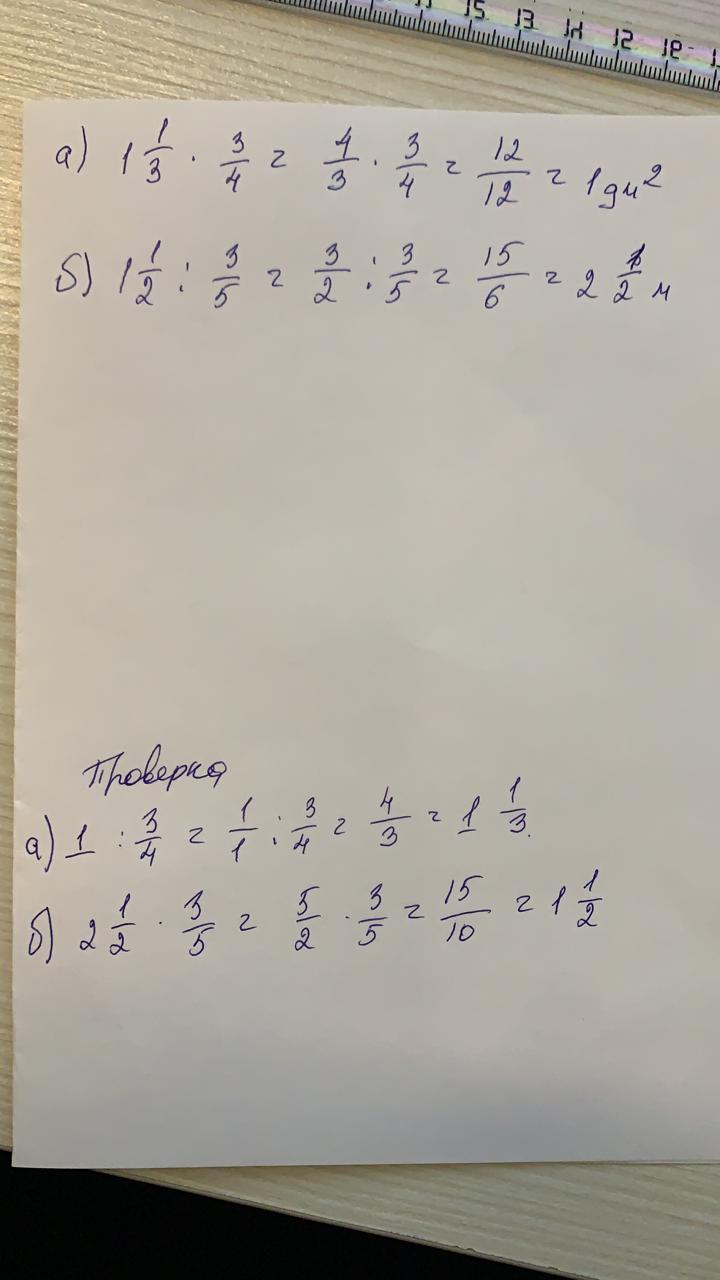 15 13 14 12 18
а) 1 1/3 · 3/4 = 4/3 · 3/4 = 12/12 = 1 дм²
б) 1 1/2 : 3/5 = 3/2 : 3/5 = 15/6 = 2 1/2 м
Проверка
а) 1 : 3/4 = 1/1 : 3/4 = 4/3 = 1 1/3.
б) 2 1/2 · 3/5 = 5/2 · 3/5 = 15/10 = 1 1/2